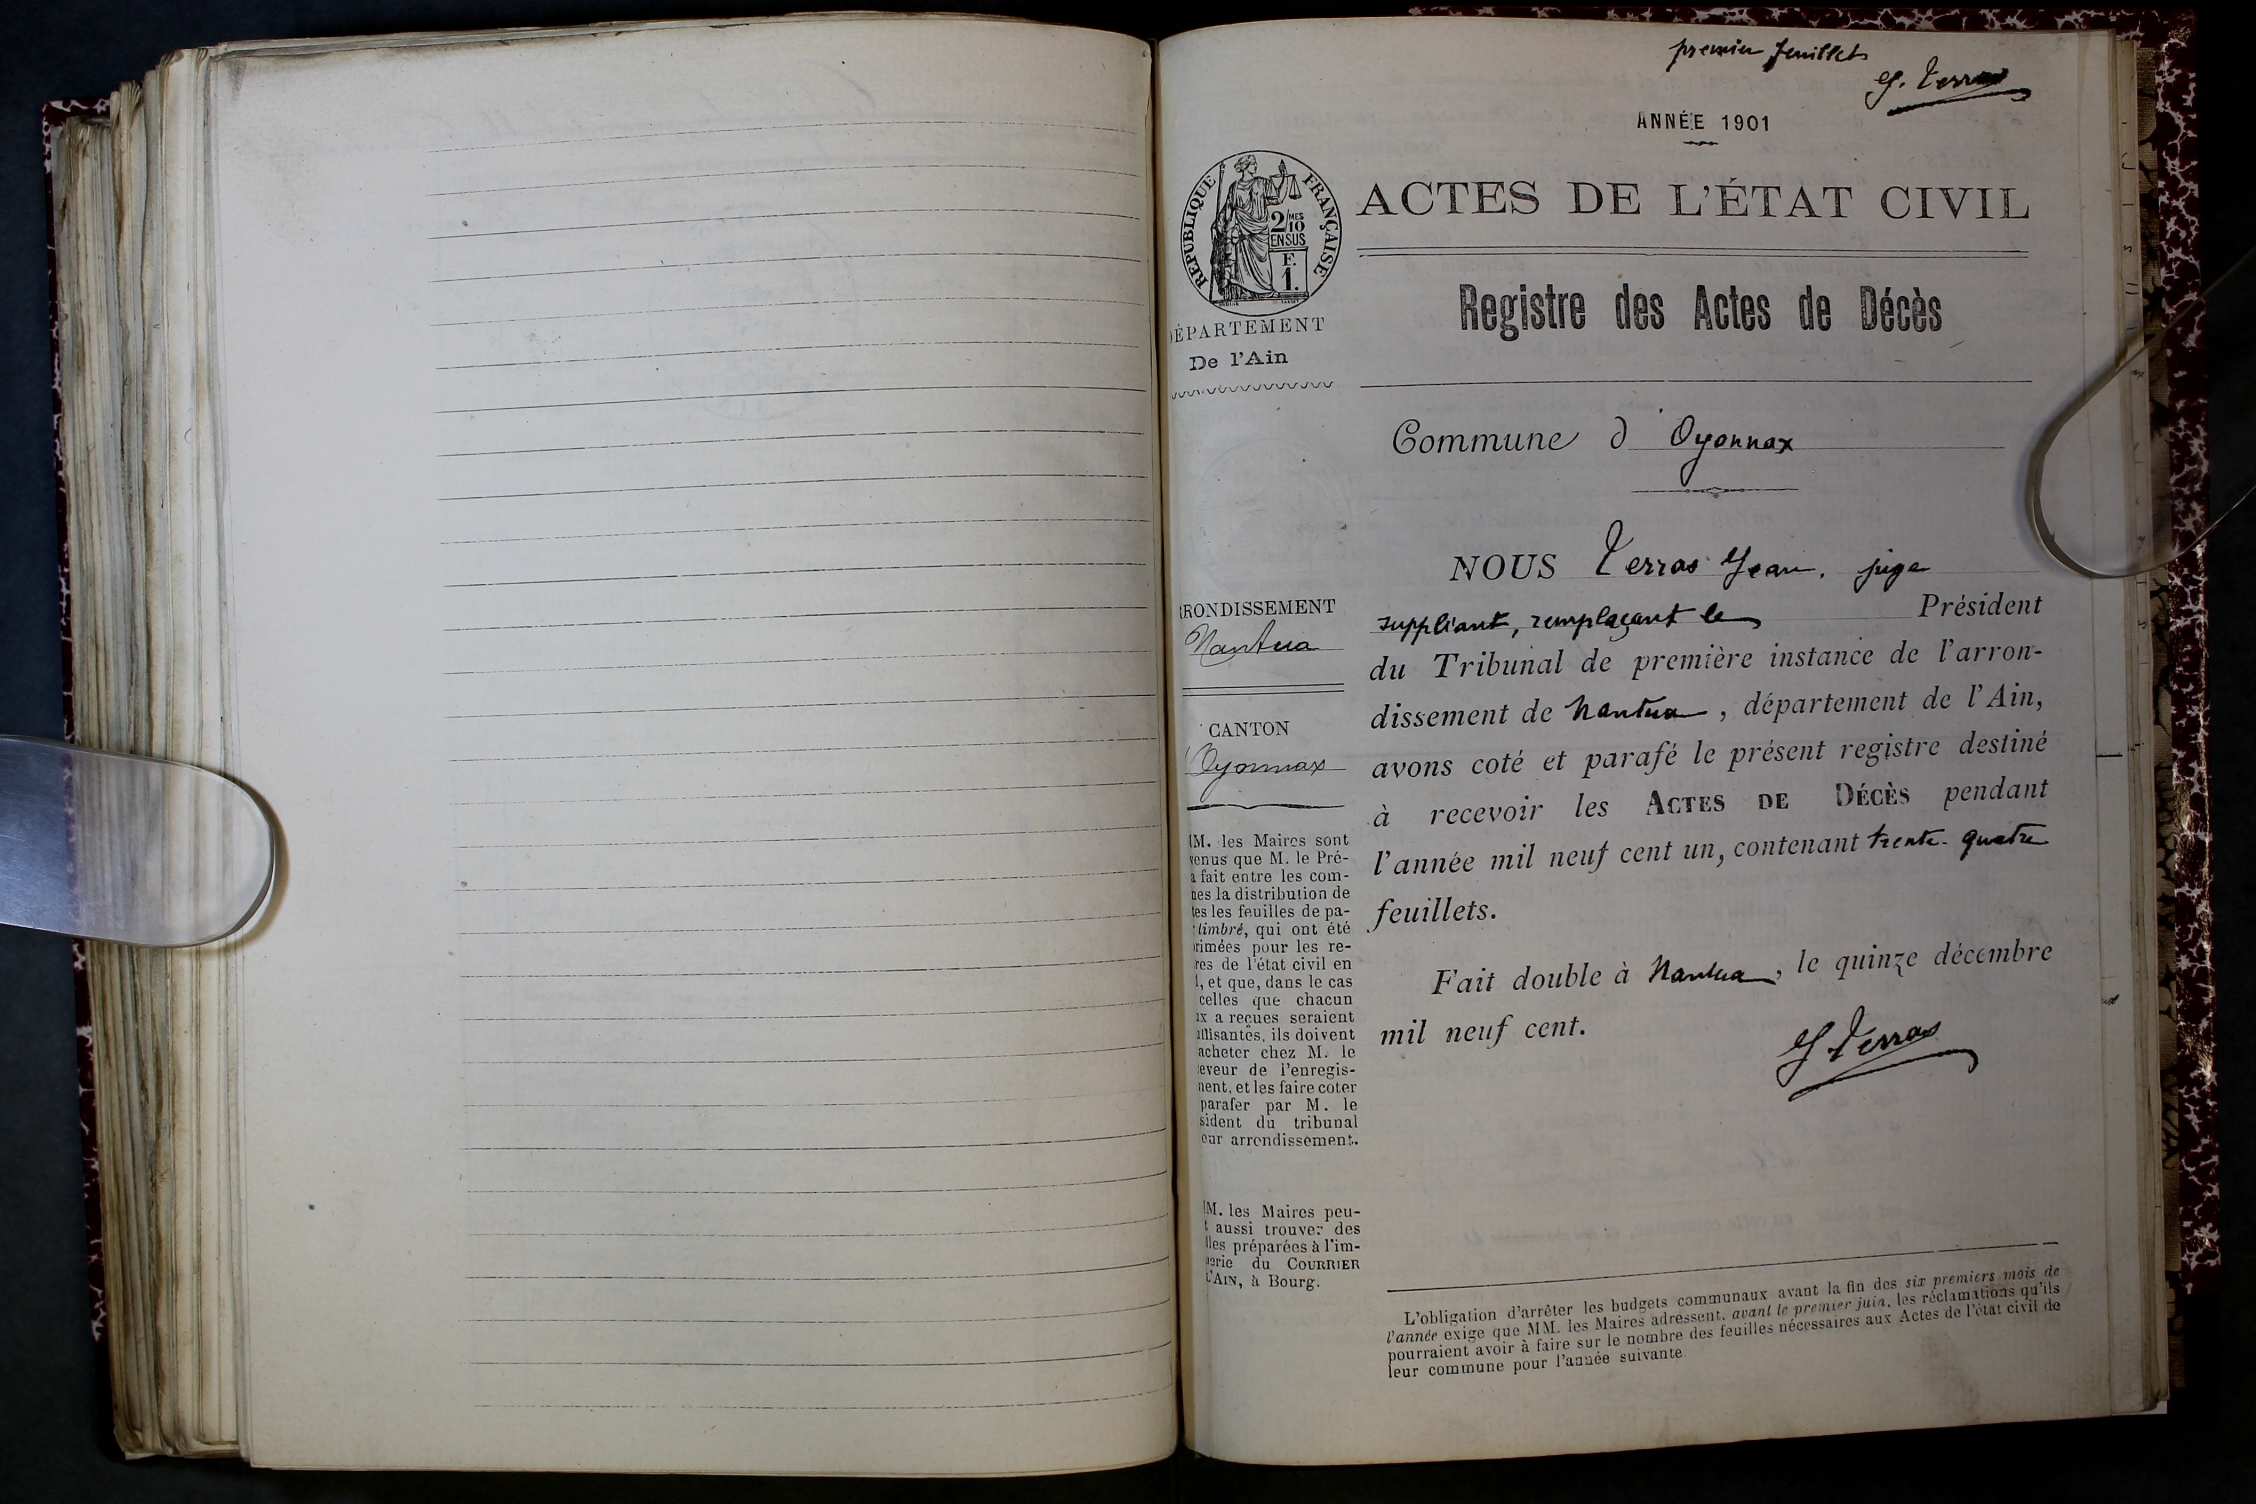 premier feuillet
J. Terras
ANNÉE 1901
RÉPUBLIQUE FRANÇAISE
2/10 MES
EN SUS
F.
1.
ACTES DE L'ÉTAT CIVIL
Registre des Actes de Décès
DÉPARTEMENT
De l'Ain
Commune d'Oyonnax
NOUS Terras Jean, juge
suppléant, remplaçant le Président
du Tribunal de première instance de l'arron-
dissement de Nantua, département de l'Ain,
avons coté et parafé le présent registre destiné
à recevoir les ACTES DE DÉCÈS pendant
l'année mil neuf cent un, contenant trente-quatre
feuillets.
Fait double à Nantua, le quinze décembre
mil neuf cent.
J Terras
RRONDISSEMENT
Nantua
CANTON
Oyonnax
MM. les Maires sont
venus que M. le Pré-
a fait entre les com-
nes la distribution de
tes les feuilles de pa-
timbré, qui ont été
rimées pour les re-
res de l'état civil en
1, et que, dans le cas
celles que chacun
ux a reçues seraient
uffisantes, ils doivent
acheter chez M. le
eveur de l'enregis-
ment, et les faire coter
parafer par M. le
sident du tribunal
eur arrondissement.
MM. les Maires peu-
t aussi trouver des
lles préparées à l'im-
merie du COURRIER
L'AIN, à Bourg.
L'obligation d'arrêter les budgets communaux avant la fin des six premiers mois de
l'année exige que MM. les Maires adressent, avant le premier juin, les réclamations qu'ils
pourraient avoir à faire sur le nombre des feuilles nécessaires aux Actes de l'état civil de
leur commune pour l'année suivante